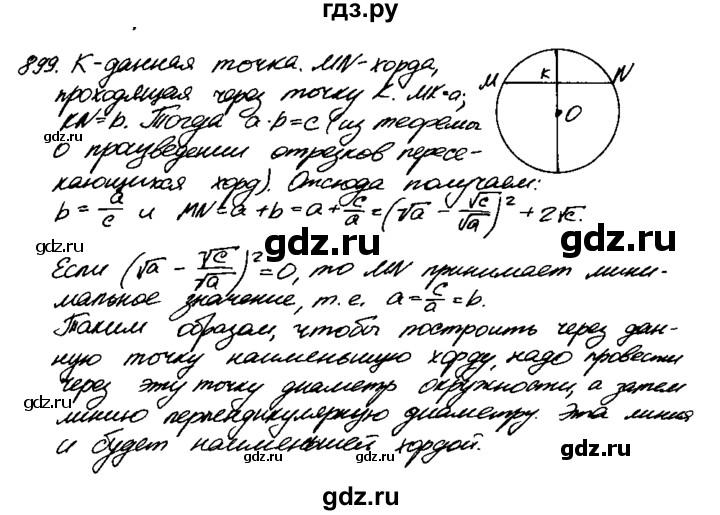 гдз.ру
899. К-данная точка. MN-хорда,
проходящая через точку К. МК=а;
KN=b. Тогда a·b=c (из теоремы
о произведении отрезков пересе-
кающихся хорд). Отсюда получаем:
b = a/c и MN=a+b=a+c/a=(√a - √c/√a)²+2√c.
Если (√a - √c/√a)²=0, то MN принимает мини-
мальное значение, т.е. a=c/a=b.
Таким образом, чтобы построить через дан-
ную точку наименьшую хорду, надо провести
через эту точку диаметр окружности, а затем
линию перпендикулярную диаметру. Эта линия
и будет наименьшей хордой.
M K N
O
gdz.ru
gdz.ru
gdz.ru
gdz.ru
gdz.ru
gdz.ru
gdz.ru
gdz.ru
gdz.ru